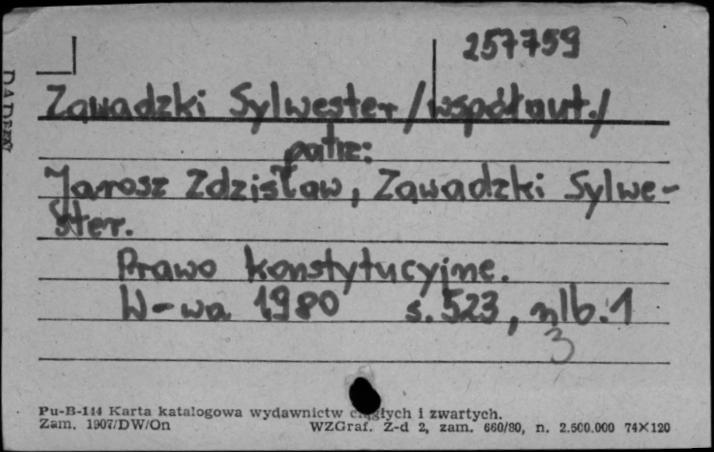 257759
Zawadzki Sylwester /współaut./
patrz:
Jarosz Zdzisław, Zawadzki Sylwe-
ster.
Prawo konstytucyjne.
W-wa 1980 s. 523, nlb. 1
3
Pu-B-144 Karta katalogowa wydawnictw ciągłych i zwartych.
Zam. 1907/DW/On WZGraf. Z-d 2, zam. 660/80, n. 2.500.000 74X120